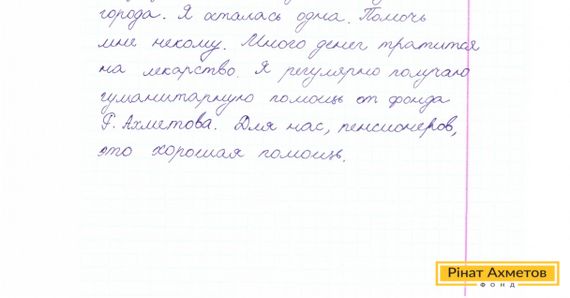 города. Я осталась одна. Помочь
мне некому. Много денег тратится
на лекарство. Я регулярно получаю
гуманитарную помощь от фонда
Р. Ахметова. Для нас, пенсионеров,
это хорошая помощь.
Рінат Ахметов
ФОНД